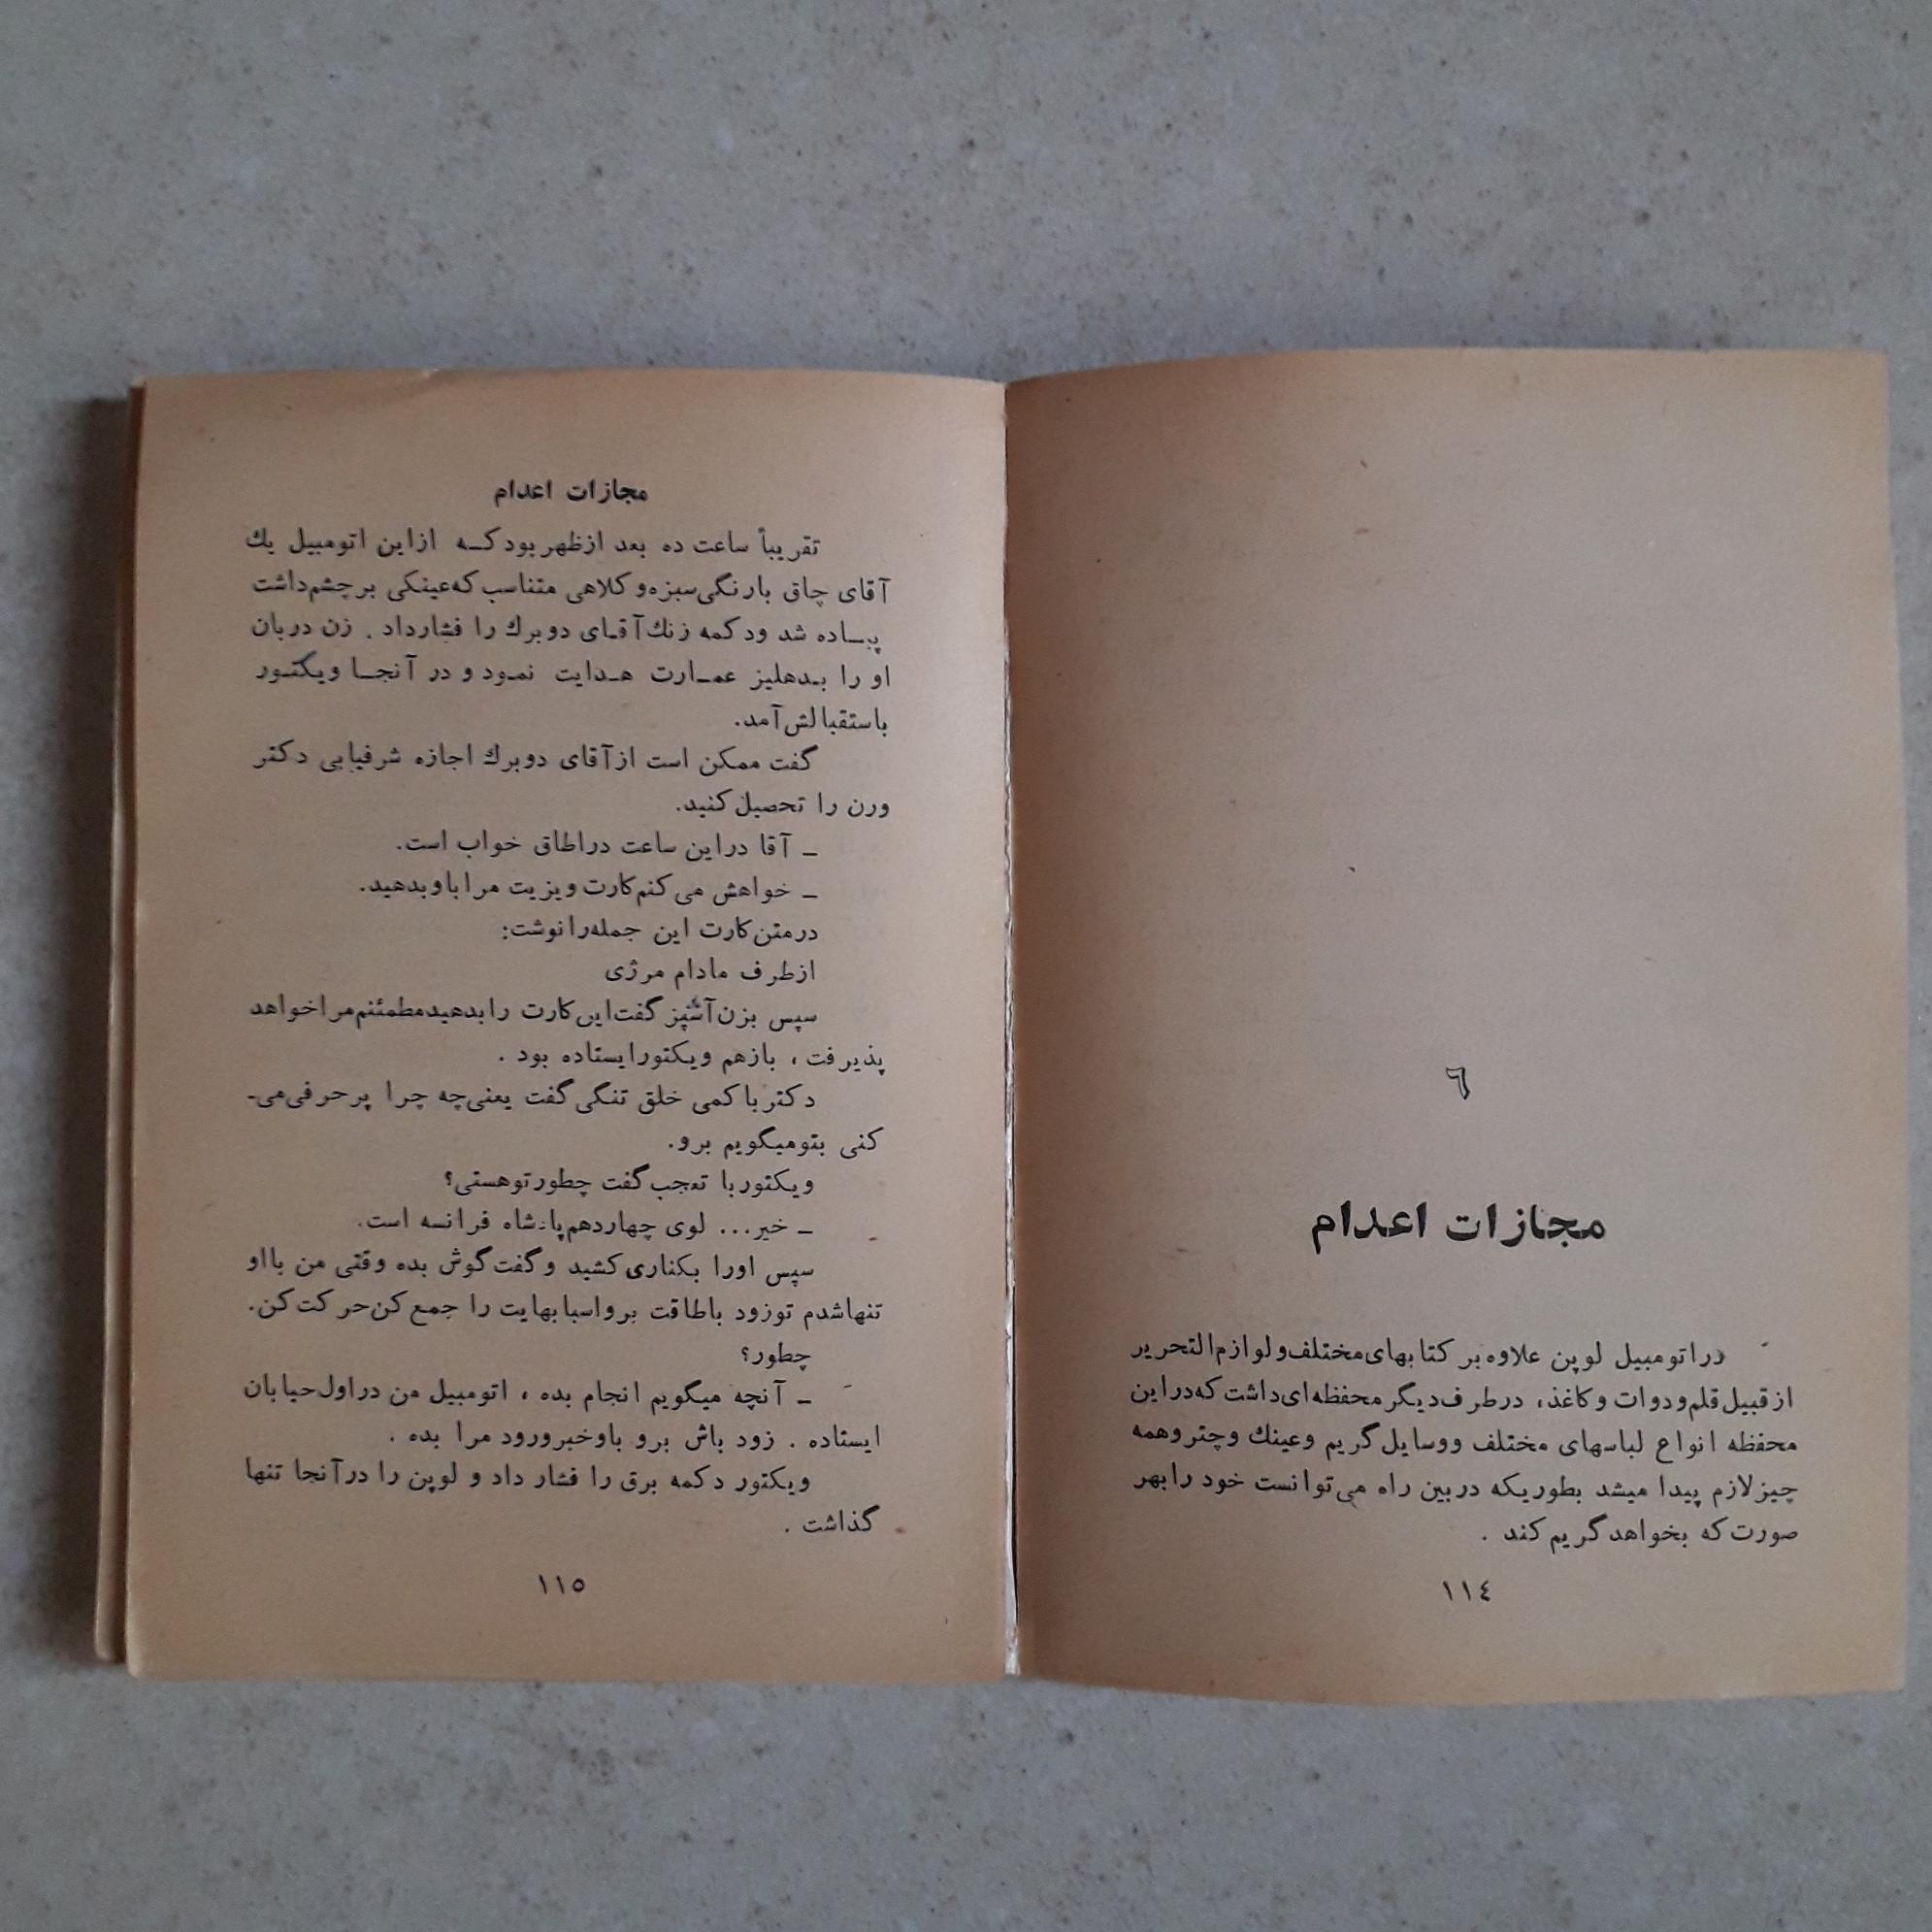 ٦
مجازات اعدام
در اتومبیل لوپن علاوه بر کتابهای مختلف و لوازم التحریر
از قبیل قلم و دوات و کاغذ، در طرف دیگر محفظه ای داشت که در این
محفظه انواع لباسهای مختلف و وسایل گریم و عینك و چتر و همه
چیز لازم پیدا میشد بطوریکه در بین راه می توانست خود را بهر
صورت که بخواهد گریم کند .
١١٤
مجازات اعدام
تقریباً ساعت ده بعد از ظهر بود کـه از این اتومبیل یك
آقای چاق با رنگی سبزه و کلاهی متناسب که عینکی بر چشم داشت
پیـاده شد و دکمه زنك آقـای دوبرك را فشار داد . زن دربان
او را بـدهلیز عمـارت هـدایت نمـود و در آنجـا ویکتـور
باستقبالش آمد.
گفت ممکن است از آقای دوبرك اجازه شرفیابی دکتر
ورن را تحصیل کنید.
ــ آقا در این ساعت در اطاق خواب است.
ــ خواهش می کنم کارت ویزیت مرا باو بدهید.
در متن کارت این جمله را نوشت:
از طرف مادام مرژی
سپس بزن آشپز گفت این کارت را بدهید مطمئنم مرا خواهد
پذیرفت ، باز هم ویکتور ایستاده بود .
دکتر با کمی خلق تنگی گفت یعنی چه چرا پر حرفی می-
کنی بتو میگویم برو.
ویکتور با تعجب گفت چطور تو هستی؟
ــ خیر... لوی چهاردهم پادشاه فرانسه است.
سپس او را بکناری کشید و گفت گوش بده وقتی من با او
تنها شدم تو زود باطاقت برو اسبابهایت را جمع کن حرکت کن.
چطور؟
ــ آنچه میگویم انجام بده ، اتومبیل من در اول خیابان
ایستاده . زود باش برو باو خبر ورود مرا بده .
ویکتور دکمه برق را فشار داد و لوپن را در آنجا تنها
گذاشت .
١١٥